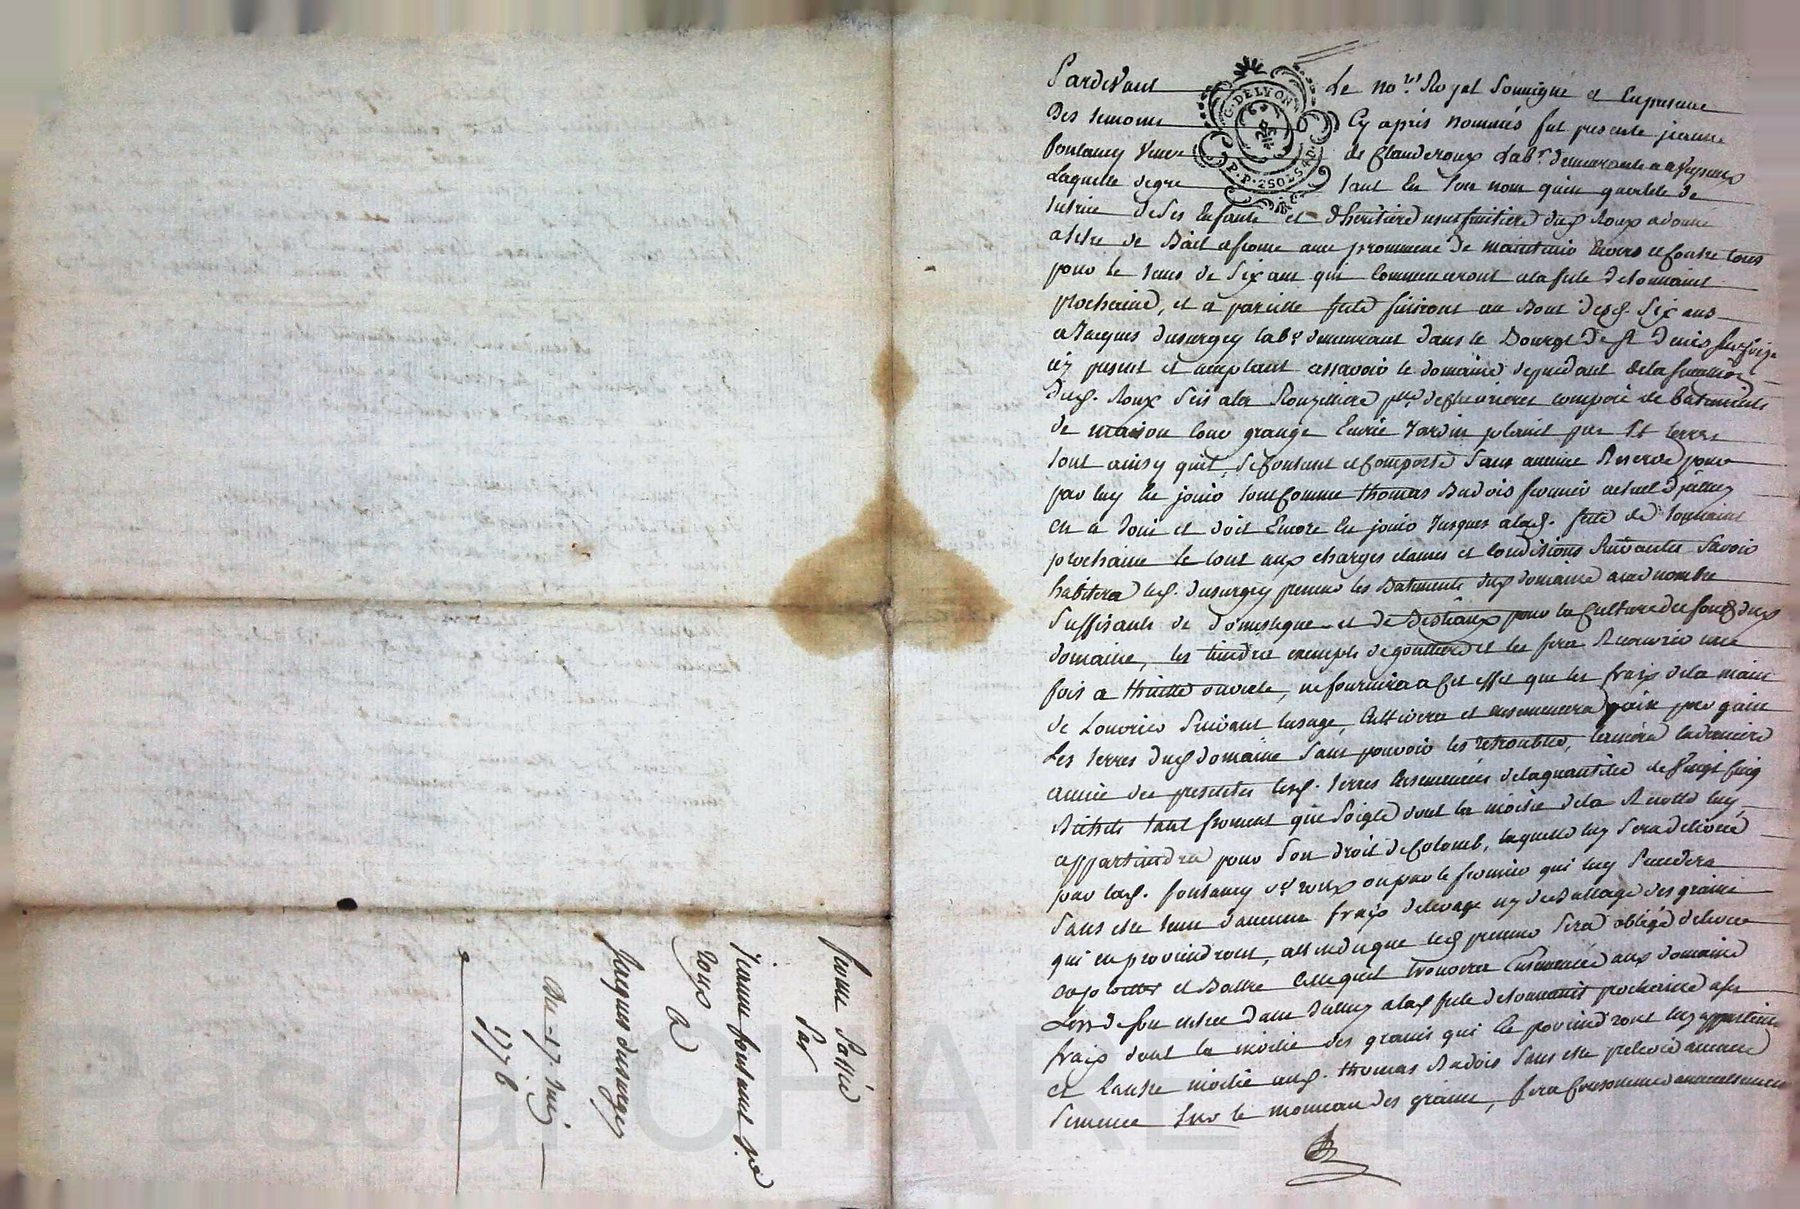 Pardevant Le no.re Royal Soussigné et En presence
Des temoins Cy après nommés fut presente jeanne
fontaney veuve de Claude roux lab.r demeurante a
Laquelle degre tant En son nom qu'en qualité de
tutrice de ses Enfants et d'heritiere usufruitiere dud. Roux a donné
a titre de Bail a ferme avec promesse de maintenir Envers et Contre tous
pour le tems de Six ans qui Commenceront a la fete de toussaint
prochaine, et a pareille fete finiront au Bout desd. Six ans
a Jacques dusurgey lab.r demeurant dans le Bourg de St Denis
icy present et acceptant assavoir le domaine dependant de la succession
dud. Roux Scis a la Rouzilliere p.sse de chevrieres composé de batiments
de maison Cour grange Ecurie Jardin pres et terres
tout ainsy qu'il se Contient et Comporte Sans aucune Reserve pour
par luy En jouir tout Comme thomas Badois fermier actuel d'jcelluy
en a Joui et doit Encore En jouir Jusques a lad. fete de toussaint
prochaine le tout aux charges clauses et Conditions Suivantes Savoir
habitera led. dusurgey preneur les Batiments dud domaine avec nombre
Suffisants de domestique et de Bestiaux pour la Culture des fonds dud
domaine, les tiendra exempts de gouttieres et les fera Recouvrir une
fois a thuille ouverte, ne fournira a Cet effet que les fraix de la main
de Louvrier Suivant lusage, Cultivera et ensemencera gain par gain
Les terres dud domaine Sans pouvoir les retroubler, laissera la derniere
année des presentes lesd. terres Ensemencées de la quantité de Vingt Cinq
Bichets tant froment que Soigle dont la moitié de la Recolte luy
appartiendra pour Son droit de Colomb, laquelle luy Sera delivré
par lad. fontaney v.e roux ou par le fermier qui luy Succedera
Sans etre tenu d'aucuns fraix de levage ny de Battage des grains
qui en proviendront, attendu que led preneur Sera obligé de lever
et Battre Celle quil trouvera Ensemencée aux domaine
Lors de Son entrée dans Icelluy a lad fete de toussaint prochaine a ses
fraix dont la moitié des grains qui En proviendront luy appartiendra
et Lautre moitié aud. thomas Badois Sans etre prelevé aucune
Semence Sur le monceau des grains, fera Consommer annuellement
G. DE LYON
P.P. 2 SOLS 4 D.
ferme Passée
Par
Jeanne fontaney v.e
roux
a
Jacques dusurgey
Du 17 Juin
1776
Pascal CHARETRON